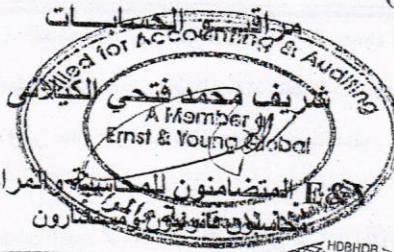 مراقب الحسابات
Allied for Accounting & Auditing
شريف محمد فتحي الكيلاني
A Member of
Ernst & Young Global
E&Y المتضامنون للمحاسبة والمرا
محاسبون قانونيون ومستشارون
HDBHDB